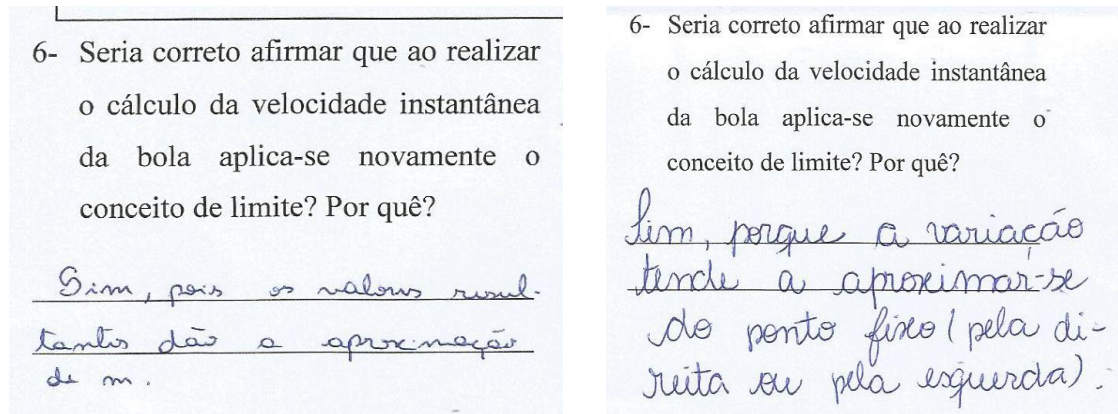 6- Seria correto afirmar que ao realizar
o cálculo da velocidade instantânea
da bola aplica-se novamente o
conceito de limite? Por quê?
Sim, pois os valores resul-
tantes dão a aproximação
de m.
6- Seria correto afirmar que ao realizar
o cálculo da velocidade instantânea
da bola aplica-se novamente o
conceito de limite? Por quê?
Sim, porque a variação
tende a aproximar-se
do ponto fixo (pela di-
reita ou pela esquerda).